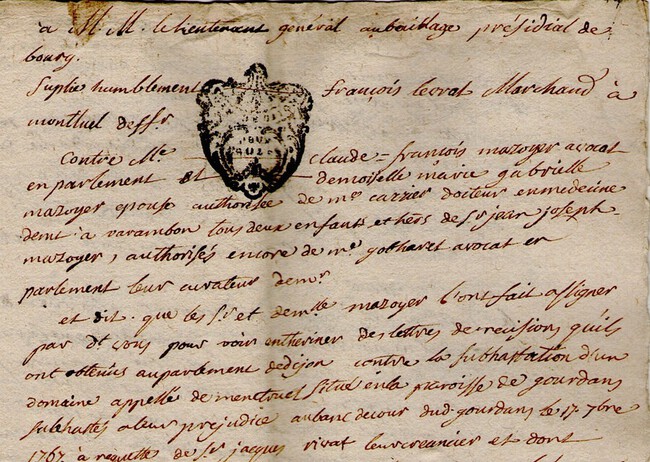 à M. M. le lieutenant général au bailliage présidial de
bourg.
Suplie humblement François Leorat Marchand à
montluel deffr
Contre Me Claude-françois mazoyer avocat
en parlement et demoiselle marie gabrielle
mazoyer epouse authorisée de me carrier docteur en medecine
demt à varambon tous deux enfants et hers de Sr jean joseph
mazoyer, authorisés encore de me avocat en
parlement leur curateur demr
et dit que les Sr et demlle mazoyer l'ont fait assigner
par dt vous pour voir entheriner des lettres de récisions qu'ils
ont obtenus au parlement de dijon contre la subhastation d'un
domaine appellé de mentruel Situé en la paroisse de gourdans
subhastés a leur prejudice au banc de cour dud. gourdans le 17 7bre
1767 à requette de Sr jacques rivat leur creancier et dont